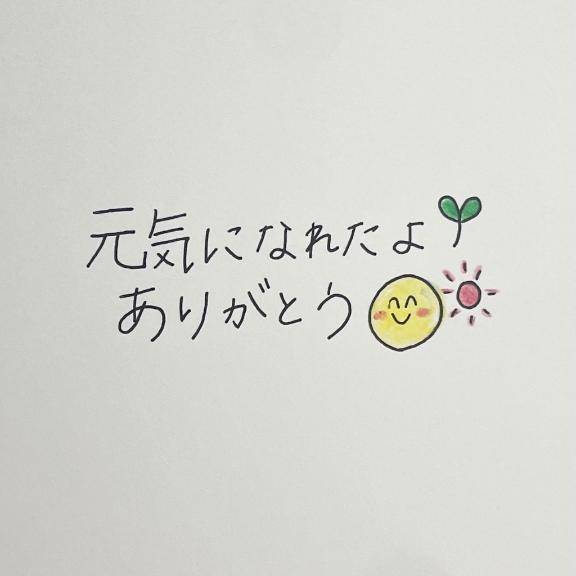 元気になれたよ
ありがとう